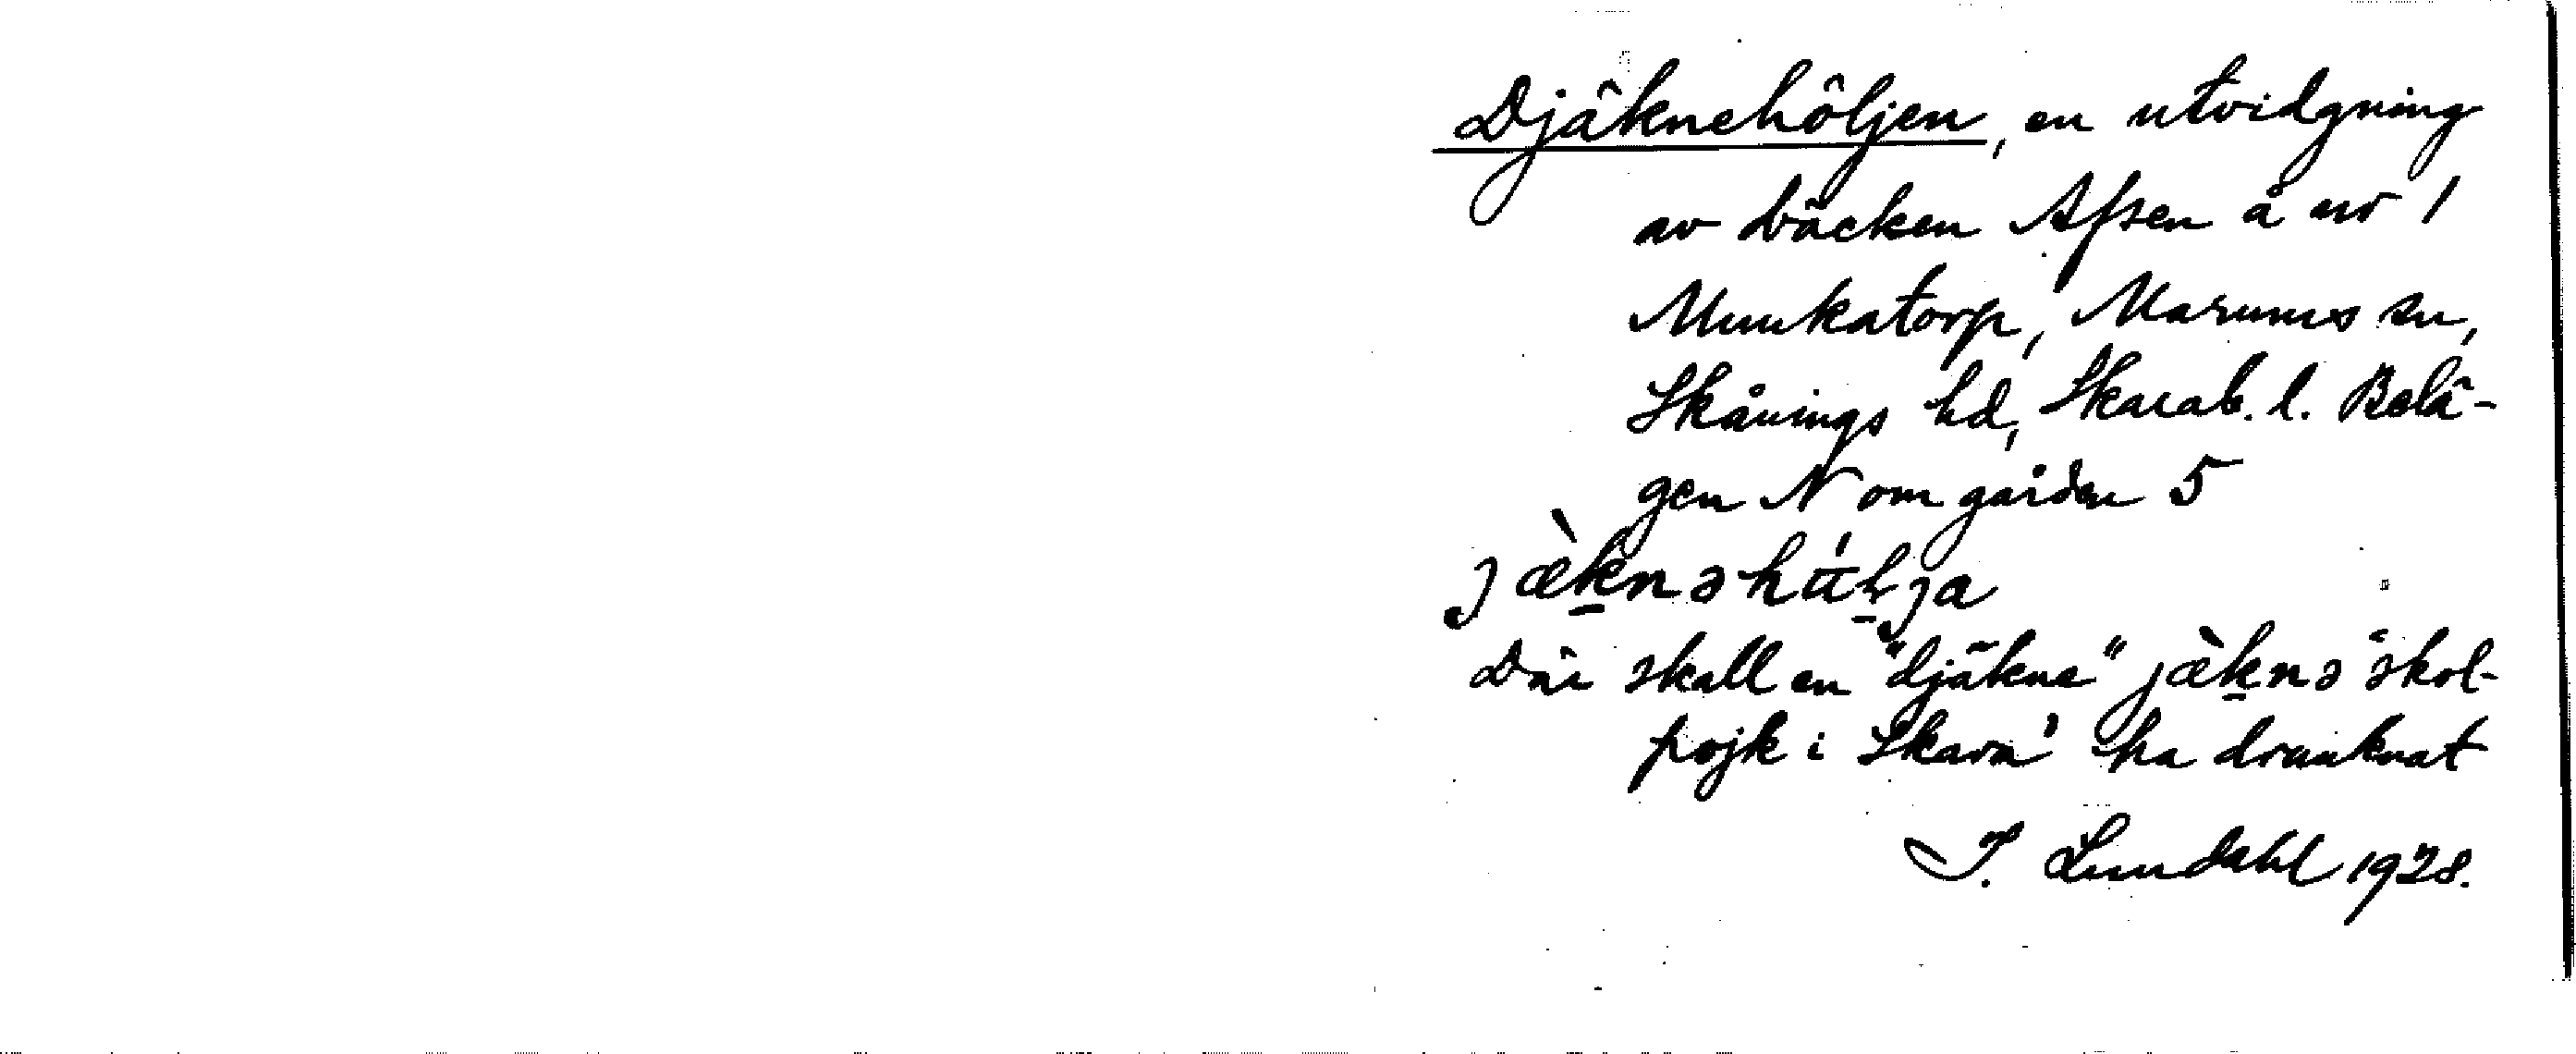 Djäknehöljen, en utvidgning
av bäcken Afsen å nr 1
Munkatorp, Marums sn,
Skånings hd, Skarab. l. Belä-
gen N om gården 5
jæ̀knəhúlja
Där skall en "djäkne" jæ̀knə 'skol-
pojk i Skara' ha drunknat
I. Lundahl 1928.